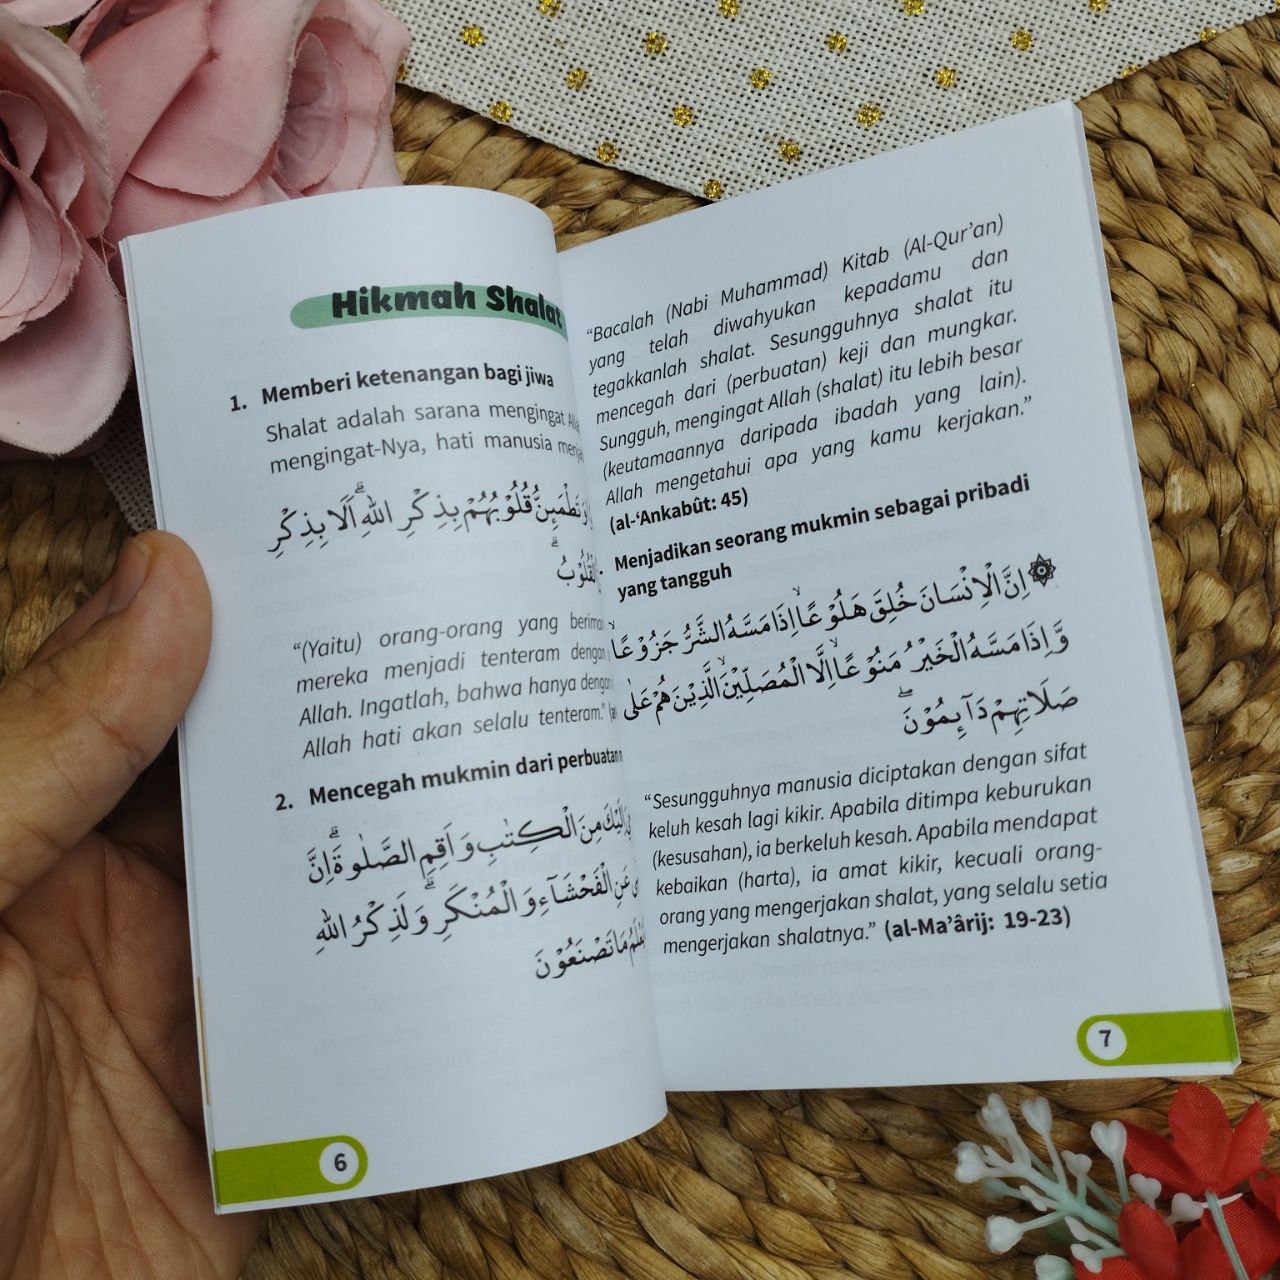 Hikmah Shalat
1. Memberi ketenangan bagi jiwa
Shalat adalah sarana mengingat
mengingat-Nya, hati manusia
قُلُوْبُهُمْ بِذِكْرِ اللّٰهِ ۗ اَلَا بِذِكْرِ
الْقُلُوْبُ ۗ
“(Yaitu) orang-orang yang
mereka menjadi tenteram dengan
Allah. Ingatlah, bahwa hanya
Allah hati akan selalu tenteram.”
2. Mencegah mukmin dari perbuatan
اِلَيْكَ مِنَ الْكِتٰبِ وَاَقِمِ الصَّلٰوةَ ۗ اِنَّ
عَنِ الْفَحْشَاۤءِ وَالْمُنْكَرِ ۗ وَلَذِكْرُ اللّٰهِ
مَا تَصْنَعُوْنَ
6
“Bacalah (Nabi Muhammad) Kitab (Al-Qur’an)
yang telah diwahyukan kepadamu dan
tegakkanlah shalat. Sesungguhnya shalat itu
mencegah dari (perbuatan) keji dan mungkar.
Sungguh, mengingat Allah (shalat) itu lebih besar
(keutamaannya daripada ibadah yang lain).
Allah mengetahui apa yang kamu kerjakan.”
(al-‘Ankabût: 45)
Menjadikan seorang mukmin sebagai pribadi
yang tangguh
۞ اِنَّ الْاِنْسَانَ خُلِقَ هَلُوْعًاۙ اِذَا مَسَّهُ الشَّرُّ جَزُوْعًاۙ
وَّاِذَا مَسَّهُ الْخَيْرُ مَنُوْعًاۙ اِلَّا الْمُصَلِّيْنَۙ الَّذِيْنَ هُمْ عَلٰى
صَلَاتِهِمْ دَاۤىِٕمُوْنَۖ
“Sesungguhnya manusia diciptakan dengan sifat
keluh kesah lagi kikir. Apabila ditimpa keburukan
(kesusahan), ia berkeluh kesah. Apabila mendapat
kebaikan (harta), ia amat kikir, kecuali orang-
orang yang mengerjakan shalat, yang selalu setia
mengerjakan shalatnya.” (al-Ma’ârij: 19-23)
7